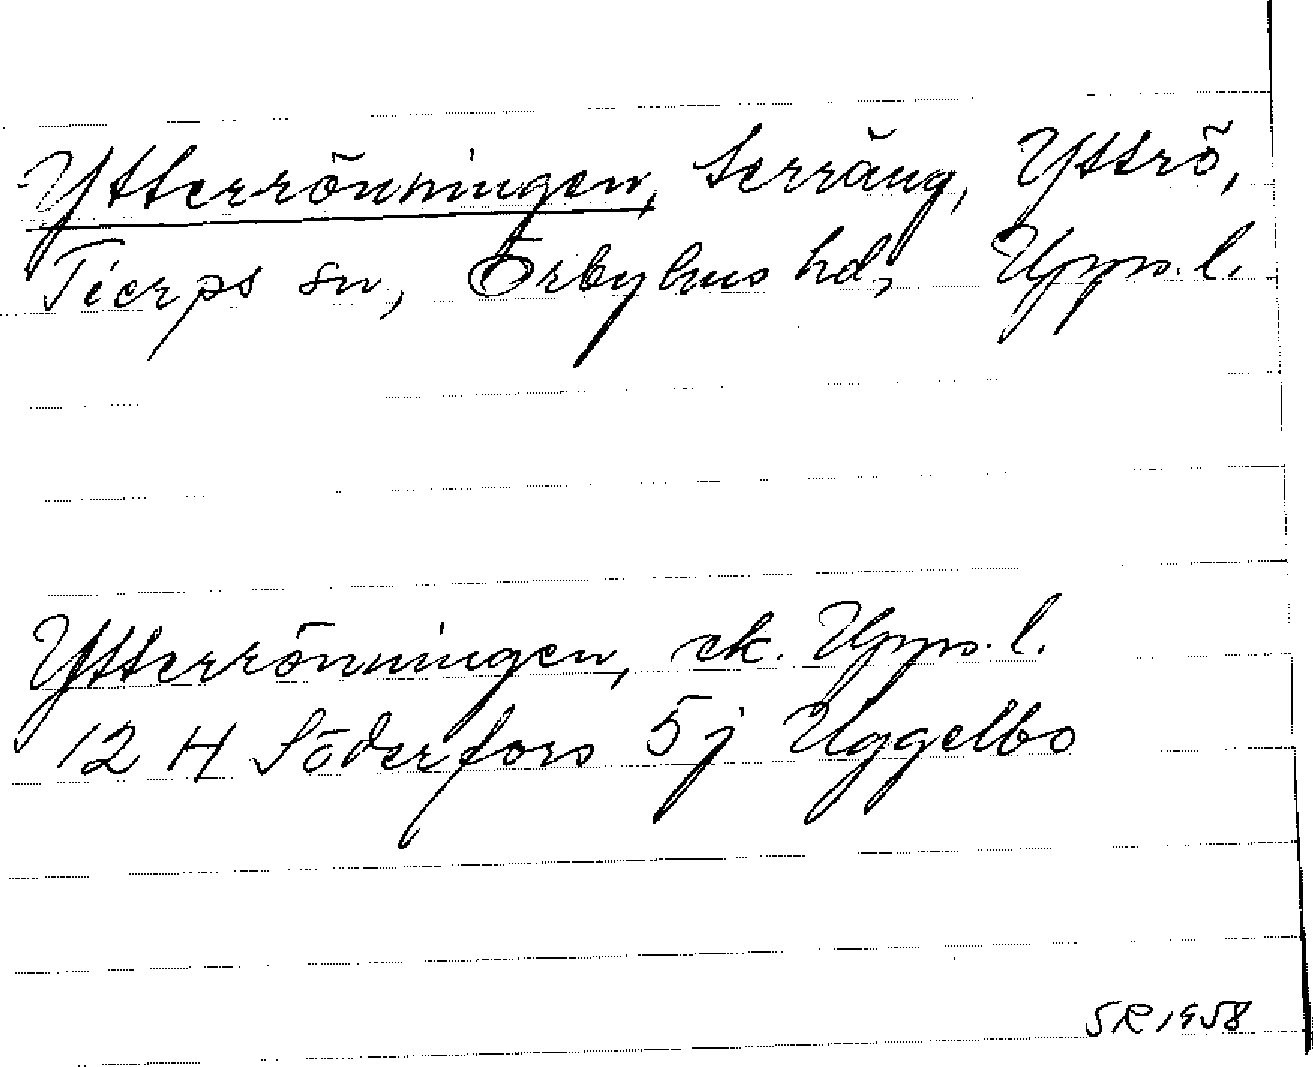 Ytterrönningen, terräng, Yttrö,
Tierps sn, Örbyhus hd, Upps. l.
Ytterrönningen, ek. Upps. l.
12 H Söderfors 5 j Uggelbo
SR 1958